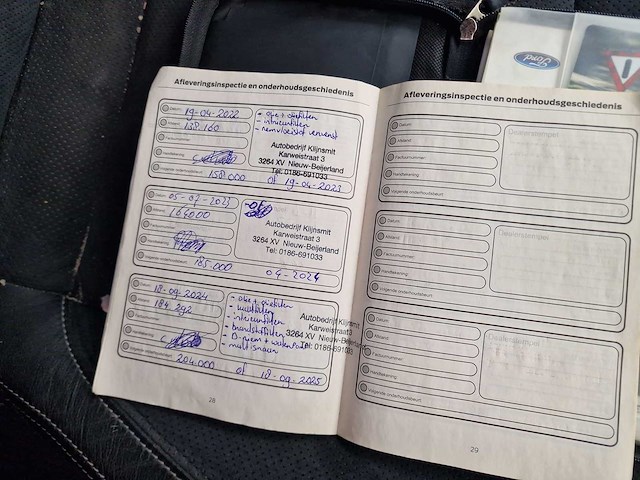 Ford
Afleveringsinspectie en onderhoudsgeschiedenis
Datum: 19-04-2022
138.160
- olie + oliefilter
- interieurfilter
- remvloeistof ververst
Autobedrijf Klijnsmit
Karweistraat 3
3264 XV Nieuw-Beijerland
Tel: 0186-691033
158.000 of 19-04-2023
05-07-2023
164000
Autobedrijf Klijnsmit
Karweistraat 3
3264 XV Nieuw-Beijerland
Tel: 0186-691033
185.000 04-2024
Datum: 18-09-2024
184292
- olie + oliefilter
- luchtfilter
- interieurfilter
- brandstoffilter
- D-riem + waterpomp
- multi-snaren
Autobedrijf Klijnsmit
Karweistraat
3264 XV Nieuw-Beijerl
Tel: 0186-691033
204.000 of 18-09-2025
28
Afleveringsinspectie en onderhoudsgeschiedenis
Datum:
Afstand:
Factuurnummer:
Handtekening:
Volgende onderhoudsbeurt:
Dealerstempel
Datum:
Afstand:
Factuurnummer:
Handtekening:
Volgende onderhoudsbeurt:
Dealerstempel
Datum:
Afstand:
Factuurnummer:
Handtekening:
Volgende onderhoudsbeurt:
Dealerstempel
29